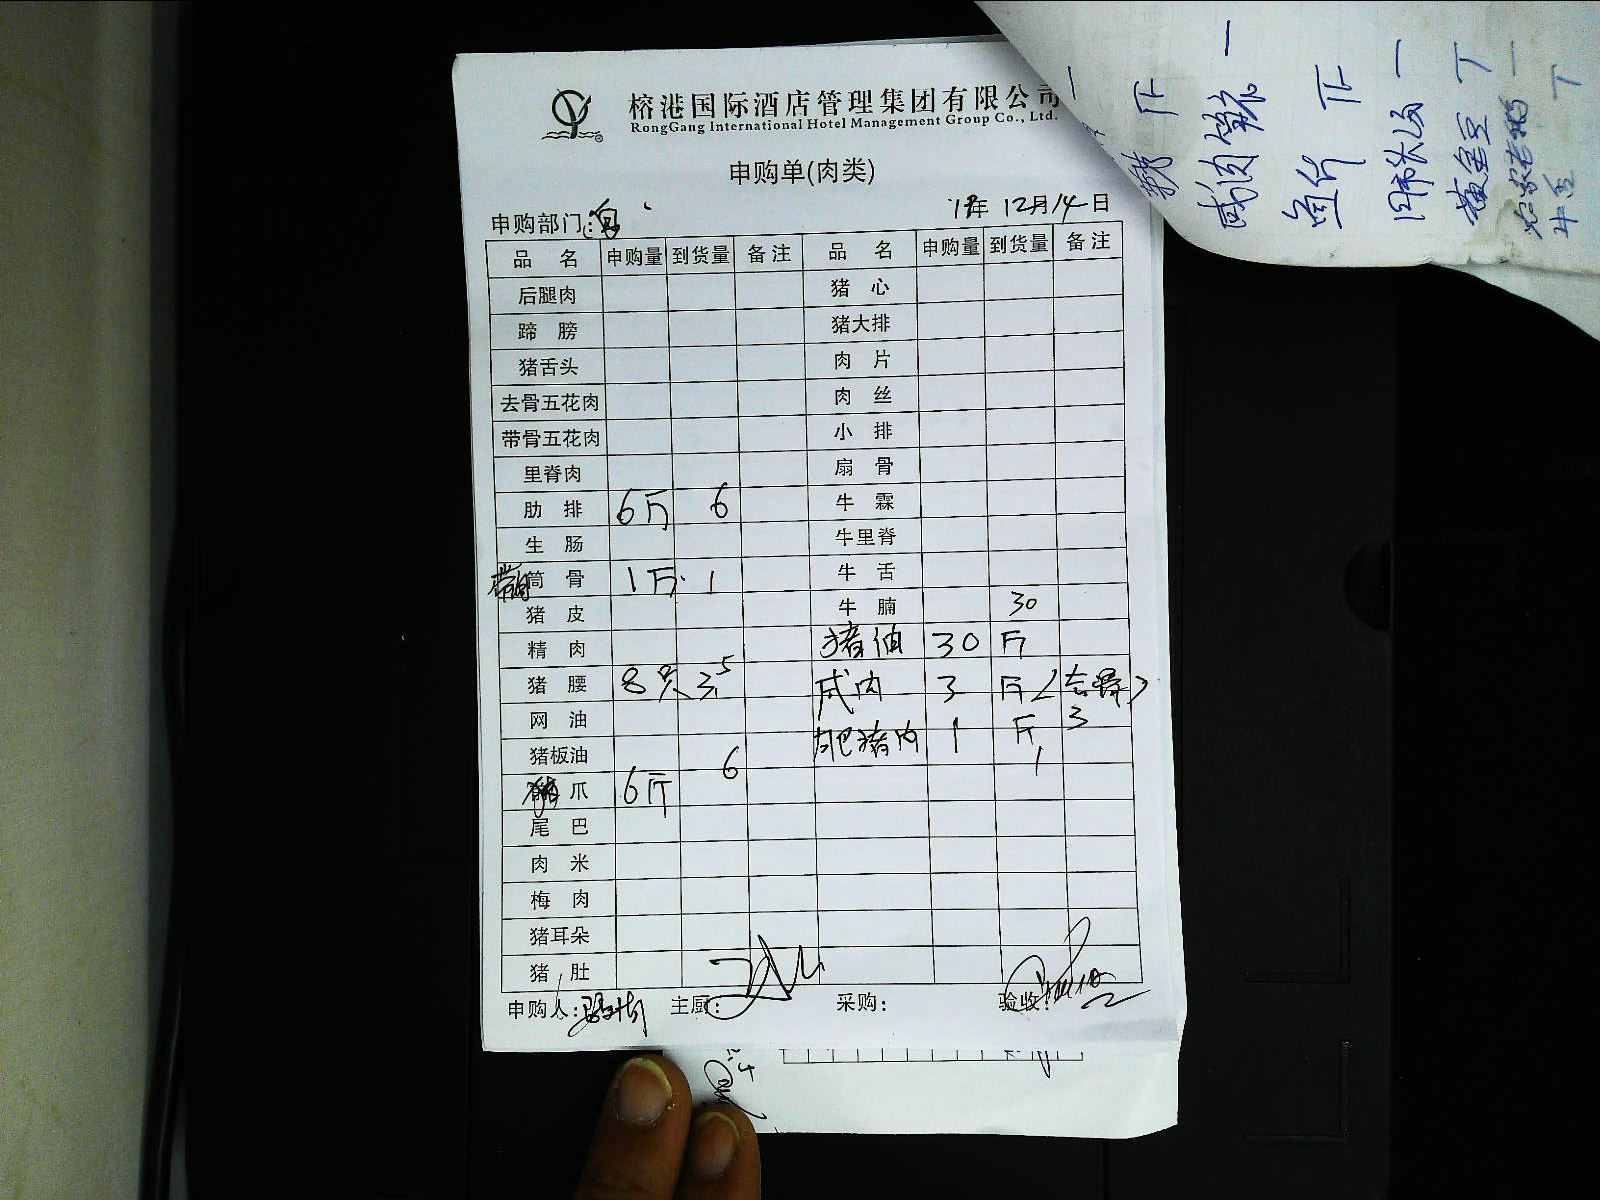 榕港国际酒店管理集团有限公司
RongGang International Hotel Management Group Co., Ltd.
申购单(肉类)
申购部门: 年 12月14日
品 名 申购量 到货量 备注 品 名 申购量 到货量 备注
后腿肉 猪 心
蹄 膀 猪大排
猪舌头 肉 片
去骨五花肉 肉 丝
带骨五花肉 小 排
里脊肉 扇 骨
肋 排 6斤 6 牛 霖
生 肠 牛里脊
筒 骨 1斤 1 牛 舌
猪 皮 牛 腩 30
精 肉 猪油 30 斤
猪 腰 8只 3.5 咸肉 3 斤(去骨)
网 油 3
猪板油 6 肥猪肉 1 斤 1
爪 6斤
尾 巴
肉 米
梅 肉
猪耳朵
猪 肚
申购人: 主厨: 采购: 验收: